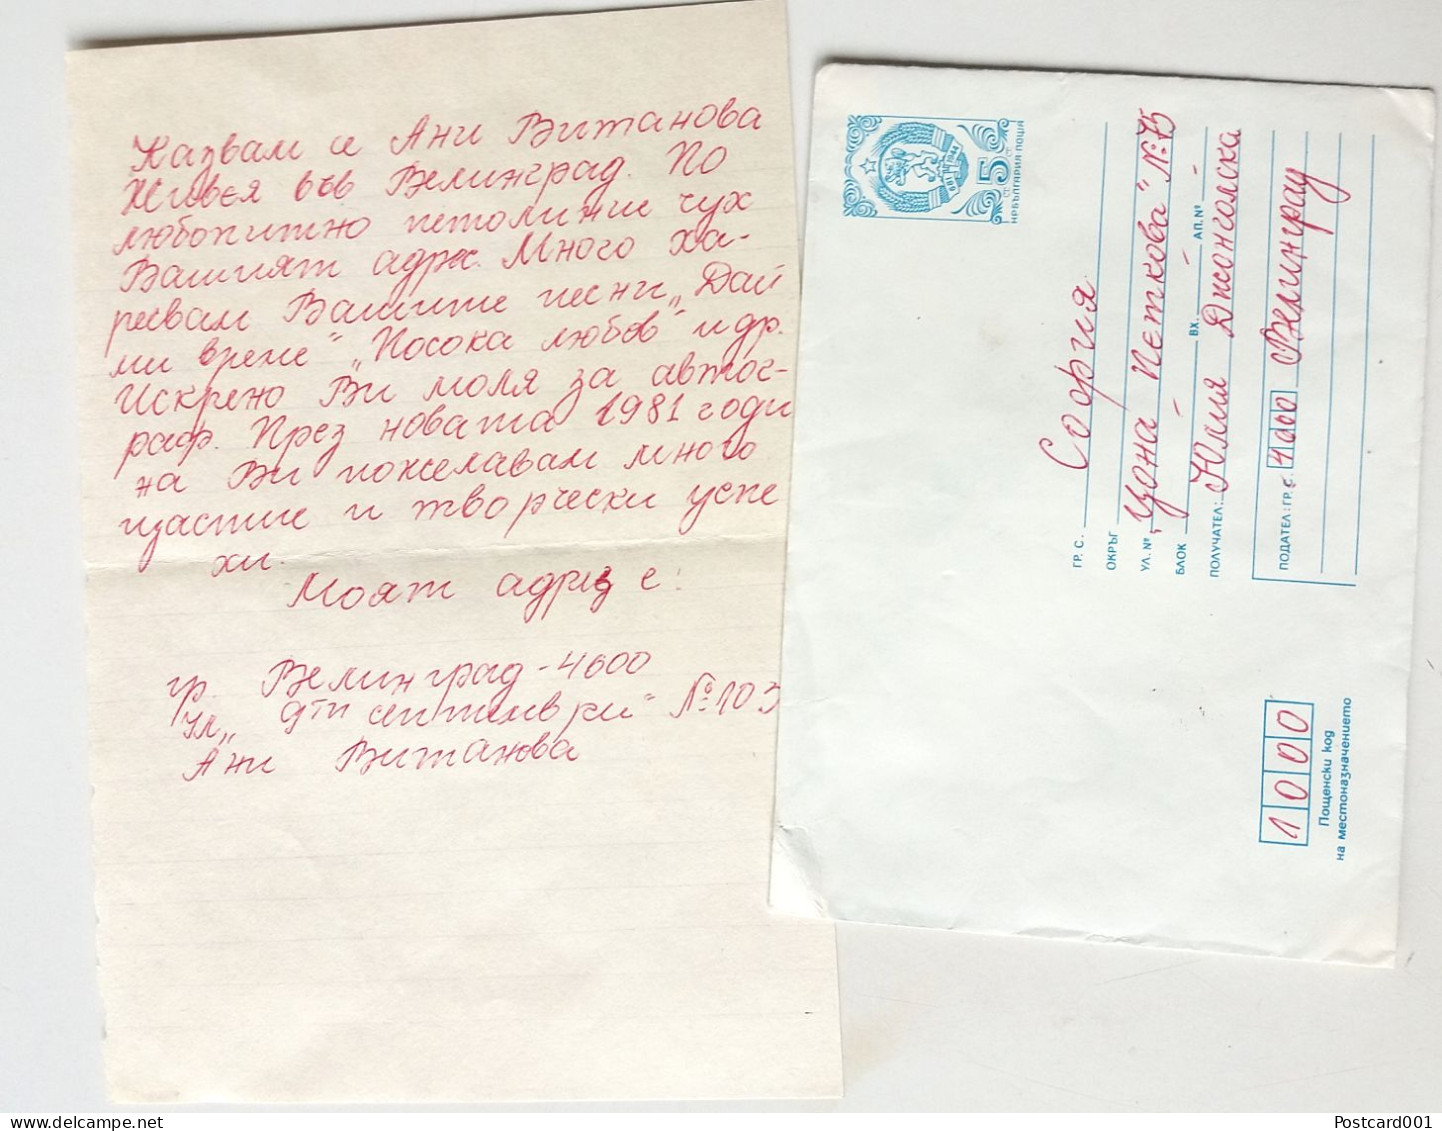 Казвам се Ани Витанова
Живея във Велинград. По
любопитно петолиние чух
Вашият адрес. Много ха-
ресвам Вашите песни „Дай
ми време" „Посока любов" и др.
Искрено Ви моля за автог-
раф. През новата 1981 годи
на Ви пожелавам много
щастие и творчески успе
хи.
Моят адрез е:
гр. Велинград - 4600
ул „ 9ти септември" № 103
Ани Витанова
5 СТ.
НР БЪЛГАРИЯ ПОЩА
ГР. С. София
ОКРЪГ
УЛ. № „Цона Петкова" № 75
БЛОК - ВХ. - АП. № -
ПОЛУЧАТЕЛ: Юлия Джонголска
ПОДАТЕЛ: ГР. С. 4600 Велинград
1000
Пощенски код
на местоназначението
Postcard001